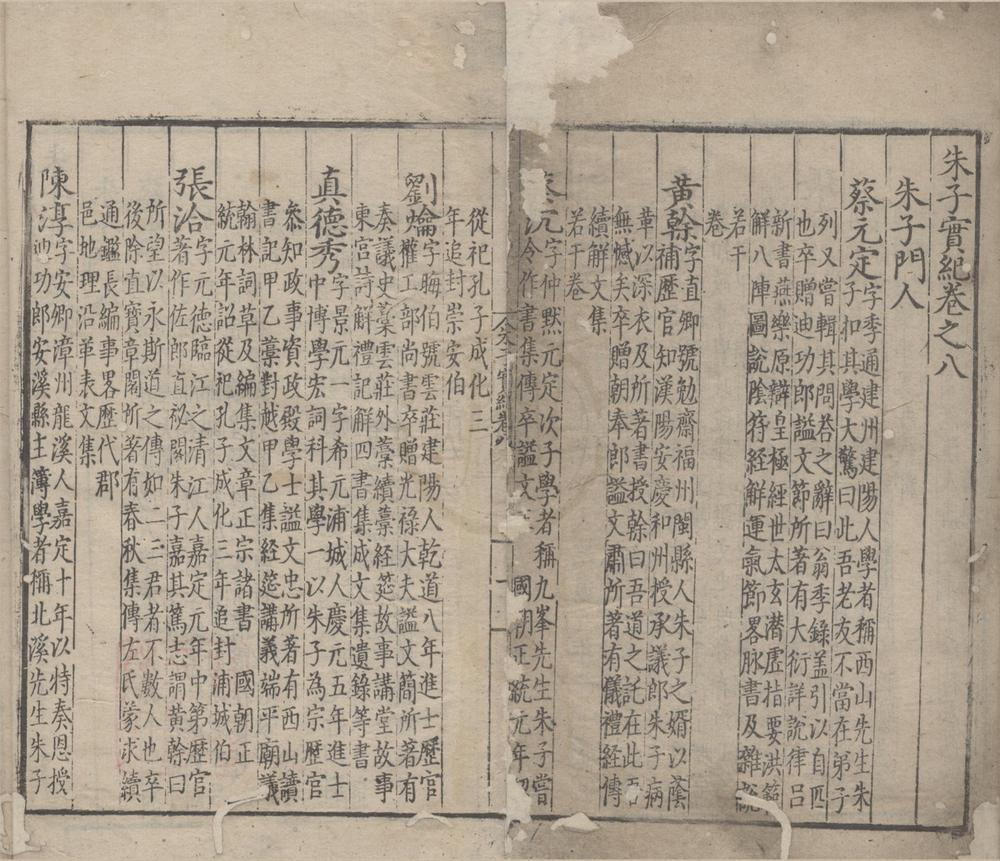 朱子實紀卷之八
朱子門人
蔡元定字季通建州建陽人學者稱西山先生朱
子扣其學大驚曰此吾老友不當在弟子
列又嘗輯其問荅之辭曰翁季錄盖引以自匹
也卒贈迪功郎謚文節所著有大衍詳說律呂
新書燕樂原辯皇極經世太玄潜虛指要洪範
解八陣圖說陰符經解運氣節畧脉書及雜說
若干
卷
黃榦字直卿號勉齋福州閩縣人朱子之婿以蔭
補歷官知漢陽安慶和州授承議郎朱子病
革以深衣及所著書授榦曰吾道之託在此吾
無憾矣卒贈朝奉郎謚文肅所著有儀禮經傳
續解文集
若干卷
字仲默元定次子學者稱九峯先生朱子嘗
令作書集傳卒謚文 國朝正統元年
從祀孔子成化三
年追封崇安伯
劉爚字晦伯號雲莊建陽人乾道八年進士歷官
權工部尚書卒贈光祿大夫謚文簡所著有
奏議史藁雲莊外藁續藁經筵故事講堂故事
東宮詩解禮記解四書集成文集遺錄等書
真德秀字景元一字希元浦城人慶元五年進士
中博學宏詞科其學一以朱子為宗歷官
叅知政事資政殿學士謚文忠所著有西山讀
書記甲乙藁對越甲乙集經筵講義端平廟議
翰林詞草及編集文章正宗諸書 國朝正
統元年詔從祀孔子成化三年追封浦城伯
張洽字元德臨江之清江人嘉定元年中第歷官
著作佐郎直祕閣朱子嘉其篤志謂黃榦曰
所望以永斯道之傳如二三君者不數人也卒
後除直寶章閣所著有春秋集傳左氏蒙求續
通鑑長編事畧歷代郡
邑地理沿革表文集
陳淳字安卿漳州龍溪人嘉定十年以特奏恩授
迪功郎安溪縣主簿學者稱北溪先生朱子